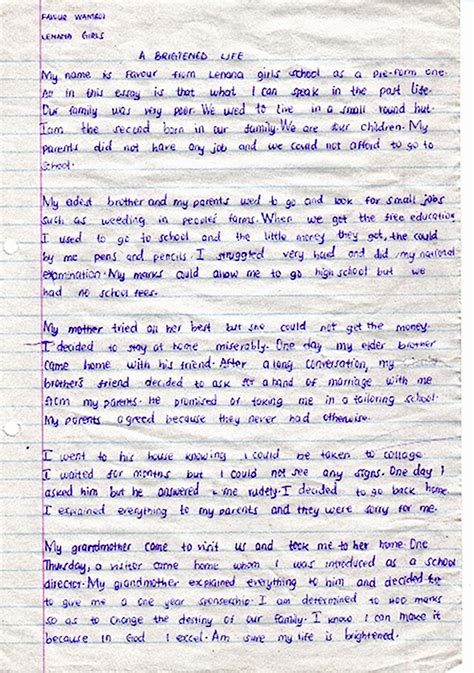 FAVOUR WAMBOI
LENANA GIRLS
A BRIGTENED LIFE
My name is Favour from Lenana girls school as a pre-form one.
All in this essay is that what I can speak in the past life.
Our family was very poor. We used to live in a small round hut.
I am the second born in our family. We are four children. My
parents did not have any job and we could not afford to go to
school.
My edest brother and my parents used to go and look for small jobs
such as weeding in peoples farms. When we get the free education
I used to go to school and the little money they get, the could
by me pens and pencils. I struggled very hard and did my national
examination. My marks could allow me to go high school but we
had no school fees.
My mother tried all her best but she could not get the money.
I decided to stay at home miserably. One day my elder brother
came home with his friend. After a long conversation, my
brothers friend decided to ask for a hand of marriage with me
from my parents. He promised of taking me in a tailoring school.
My parents agreed because they never had otherwise.
I went to his house knowing I could be taken to collage
I waited for months but I could not see any signs. One day I
asked him but he answered me rudely. I decided to go back home
I explained everything to my parents and they were sorry for me.
My grandmother came to visit us and took me to her home. One
Thursday, a visitor came home whom I was introduced as a school
director. My grandmother explained everything to him and decided to
to give me a one year sponsership. I am determined to 400 marks
so as to change the destiny of our family. I know I can make it
because in God I excel. Am sure my life is brightened.